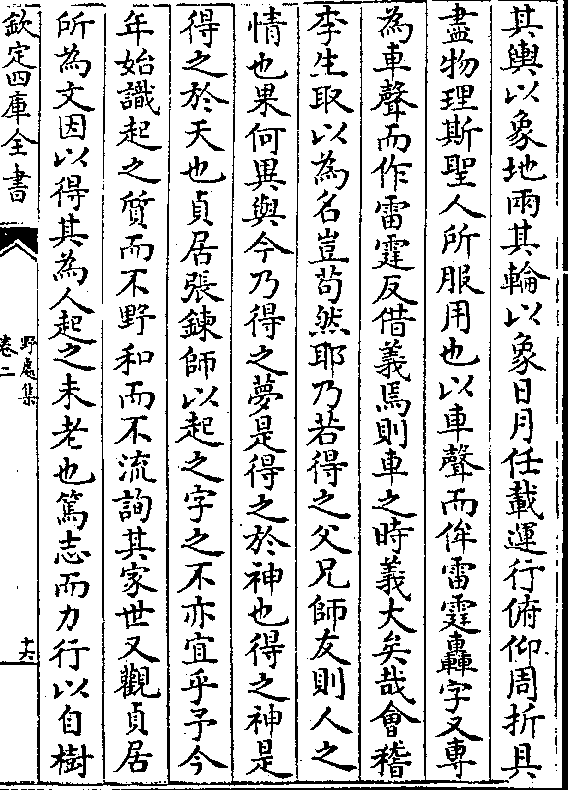 其輿以象地兩其輪以象日月任載運行俯仰周折具
盡物理斯聖人所服用也以車聲而侔雷霆轟字又專
為車聲而作雷霆反借義焉則車之時義大矣哉會稽
李生取以為名豈苟然耶乃若得之父兄師友則人之
情也果何異與今乃得之夢是得之於神也得之神是
得之於天也貞居張鍊師以起之字之不亦宜乎予今
年始識起之質而不野和而不流詢其家世又觀貞居
所為文因以得其為人起之未老也篤志而力行以自樹
欽定四庫全書
野處集
卷二
十六